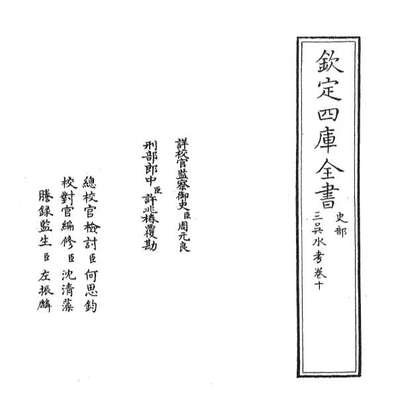 欽定四庫全書
史部
三吳水考卷十
詳校官監察御史臣周元良
刑部郎中臣許兆椿覆勘
總校官檢討臣何思鈞
校對官編修臣沈清藻
謄錄監生臣左振麟